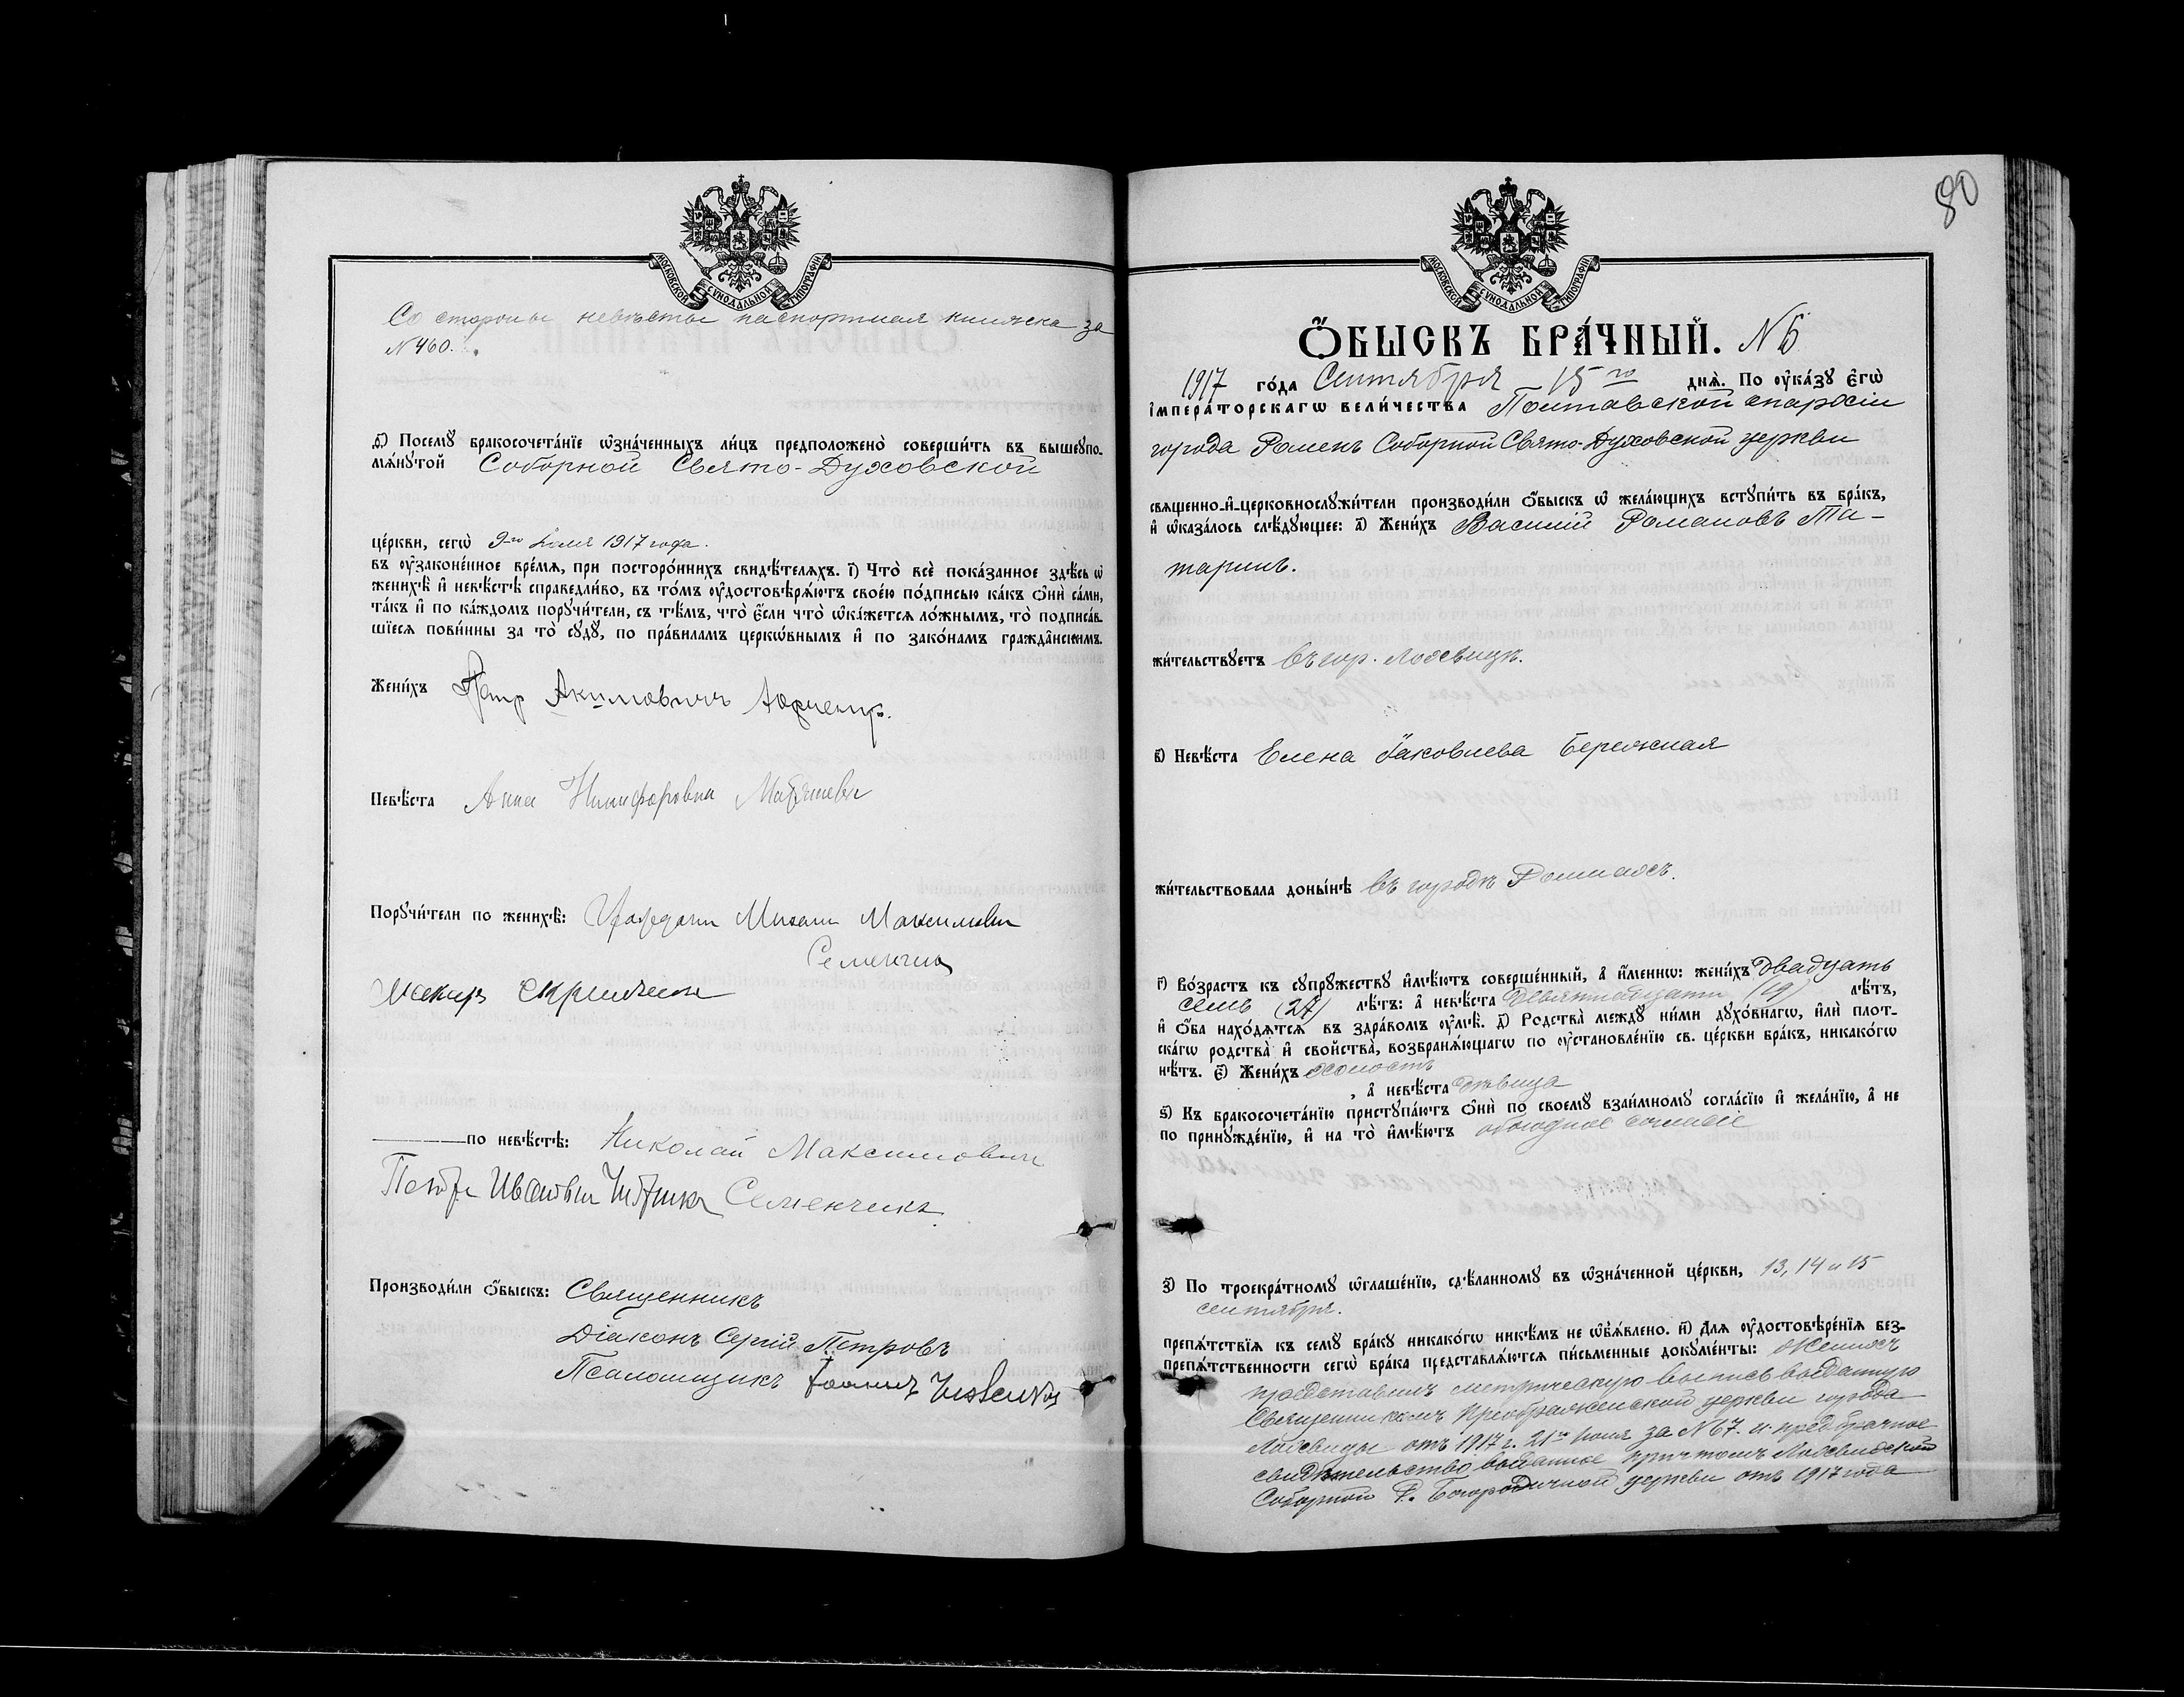 Со стороны невѣсты паспортная книжка за
№ 460.
МОСКОВСКОЙ СѴНОДАЛЬНОЙ ТИПОГРАФІИ
ѳ҃) Посемꙋ бракосочета́нїе ѡ҆зна́ченныхъ ли́цъ предположено̀ соверши́ть въ вышеꙋпо-
мѧ́нꙋтой Соборной Свято-Духовской
це́ркви, сегѡ̀ 9-го Іюля 1917 года.
въ ᲂу҆зако́ненное вре́мѧ, при посторо́ннихъ свидѣ́телѧхъ. і҃) Что̀ всѐ пока́занное здѣ́сь ѡ҆
женихѣ̀ и҆ невѣ́стѣ справедли́во, въ то́мъ ᲂу҆достовѣрѧ́ютъ свое́ю по́дписью ка́къ ѻ҆нѝ са́ми,
та́къ и҆ по ка́ждомъ порꙋчи́тели, съ тѣ́мъ, что̀ є҆́сли что̀ ѡ҆ка́жетсѧ ло́жнымъ, то̀ подписа́в-
шїесѧ пови́нны за то̀ сꙋдꙋ̀, по пра́виламъ церкѡ́внымъ и҆ по зако́намъ гражда́нскимъ.
Жени́хъ Акимовичъ
Невѣ́ста Анна Никифоровна
Порꙋчи́тели по женихѣ̀: Михаил Максимович
Семенчик
по невѣ́стѣ: Николай Максимович
Петр Иванович Семенчикъ
Производи́ли ѻ҆́быскъ: Священникъ
Діаконъ Сергій Петровъ
Псаломщикъ Іоаннъ
80
МОСКОВСКОЙ СѴНОДАЛЬНОЙ ТИПОГРАФІИ
Ѻ҆́БЫСКЪ БРА́ЧНЫЙ. № 6
1917 го́да Сентября 15го днѧ̀. По ᲂу҆ка́зꙋ є҆гѡ̀
і҆мпера́торскагѡ вели́чества Полтавской епархіи
города Роменъ Соборной Свято-Духовской церкви
свѧщенно-и҆-церковнослꙋжи́тели производи́ли ѻ҆́быскъ ѡ҆ жела́ющихъ вступи́ть въ бра́къ,
и҆ ѡ҆каза́лось слѣ́дꙋющее: а҃) Жени́хъ Василій Романовъ Та-
таринъ.
жи́тельствꙋетъ въ гор. Лохвицѣ.
в҃) Невѣ́ста Елена Яковлева Бережная
жи́тельствовала доны́нѣ въ городѣ Ромнахъ.
г҃) Во́зрастъ къ сꙋпрꙋ́жествꙋ и҆мѣ́ютъ соверше́нный, а҆ и҆́менно: жени́хъ двадцать
семь (27) лѣ́тъ: а҆ невѣ́ста девятнадцати (19) лѣ́тъ,
и҆ ѻ҆́ба нахо́дѧтсѧ въ здра́вомъ ᲂу҆мѣ̀. д҃) Родства̀ междꙋ ни́ми дꙋхо́внагѡ, и҆лѝ плот-
ска́гѡ родства̀ и҆ свойства̀, возбранѧ́ющагѡ по ᲂу҆становле́нїю св. це́ркви бра́къ, никако́гѡ
нѣ́тъ. є҃) Жени́хъ холостъ
, а҆ невѣ́ста дѣвица
ѕ҃) Къ бракосочета́нїю пристꙋпа́ютъ ѻ҆нѝ по своемꙋ̀ взаи́мномꙋ согла́сїю и҆ жела́нїю, а҆ не
по принꙋжде́нїю, и҆ на то̀ и҆мѣ́ютъ обоюдное согласіе
з҃) По троекра́тномꙋ ѡ҆глаше́нїю, сдѣ́ланномꙋ въ ѡ҆зна́ченной це́ркви, 13, 14 и 15
сентября.
препѧ́тствїѧ къ семꙋ̀ бра́кꙋ никако́гѡ никѣ́мъ не ѡ҆бъѧ́влено. и҃) Длѧ ᲂу҆достовѣре́нїѧ без-
препѧ́тственности сегѡ̀ бра́ка представлѧ́ютсѧ пи́сьменные докꙋме́нты: Женихъ
представилъ метрическую выпись выданную
Священникомъ Преображенской церкви города
Лохвицы отъ 1917 г. 21го Іюля за № 67. и предбрачное
свидѣтельство выданное причтомъ Лохвицкой
Соборной Р. Богородичной церкви отъ 1917 года